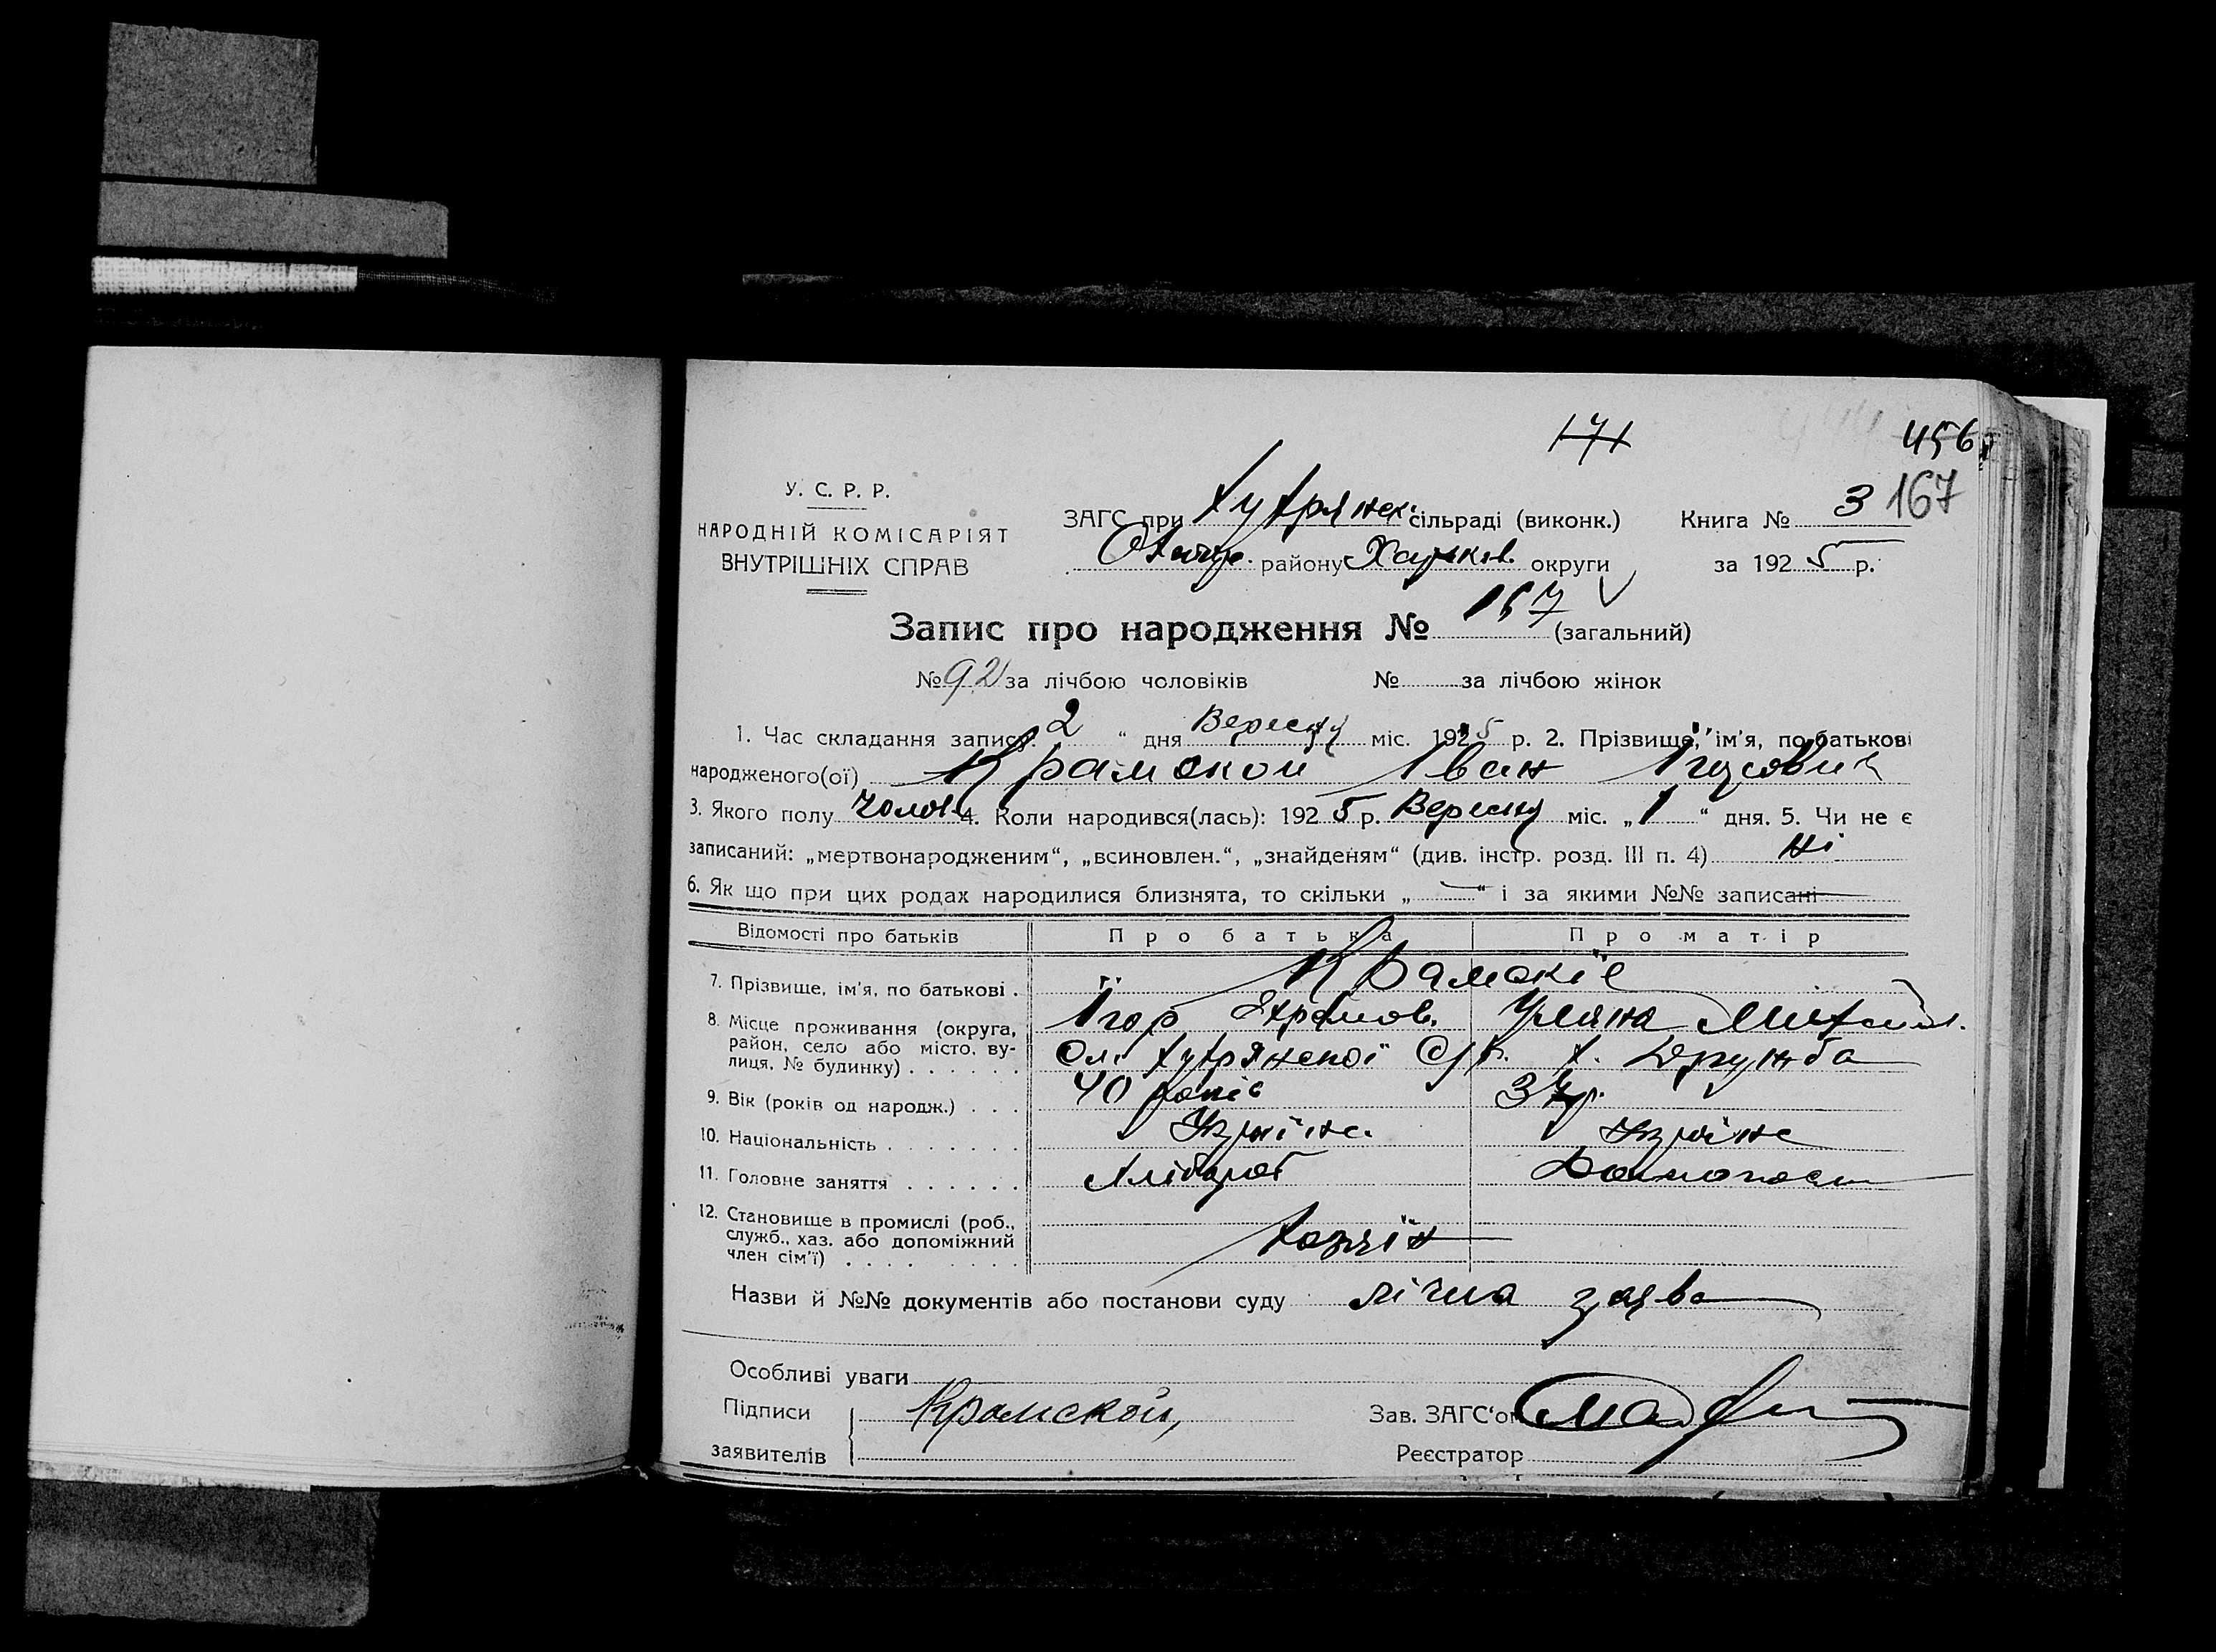 171 456
У. С. Р. Р.
НАРОДНІЙ КОМІСАРІЯТ
ВНУТРІШНІХ СПРАВ
ЗАГС при Хухрянск. сільраді (виконк.) Книга № 3 167
Охтир. району Харьків. округи за 1925 р.
Запис про народження № 167 (загальний)
№ 92 за лічбою чоловіків № за лічбою жінок
1. Час складання запису: 2 “ дня Вересня міс. 1925 р. 2. Прізвище, ім'я, по батькові
народженого(ої) Крамской Іван Ігорович
3. Якого полу Чолов. 4. Коли народився(лась): 1925 р. Вересня міс. „1“ дня. 5. Чи не є
записаний: „мертвонародженим“, „всиновлен.“, „знайденям“ (див. інстр. розд. III п. 4) Ні
6. Як що при цих родах народилися близнята, то скільки „ “ і за якими №№ записані
Відомості про батьків Про батька Про матір
7. Прізвище, ім'я, по батькові . Крамскіе
Ігор Уляна Михайл.
8. Місце проживання (округа, район, село або місто, вулиця, № будинку) . . . . . . Хухрянської С/р. х. Дружба
9. Вік (років од народж.) . . . 40 років 37 р.
10. Національність . . . . . . . Україне. Україне
11. Головне заняття . . . . . . Хлібороб Домогосп
12. Становище в промислі (роб., служб., хаз. або допоміжний член сім'ї) . . . . . . . . Хазяїн
Назви й №№ документів або постанови суду лічна заява
Особливі уваги
Підписи заявителів Крамской,
Зав. ЗАГС'ом
Реєстратор